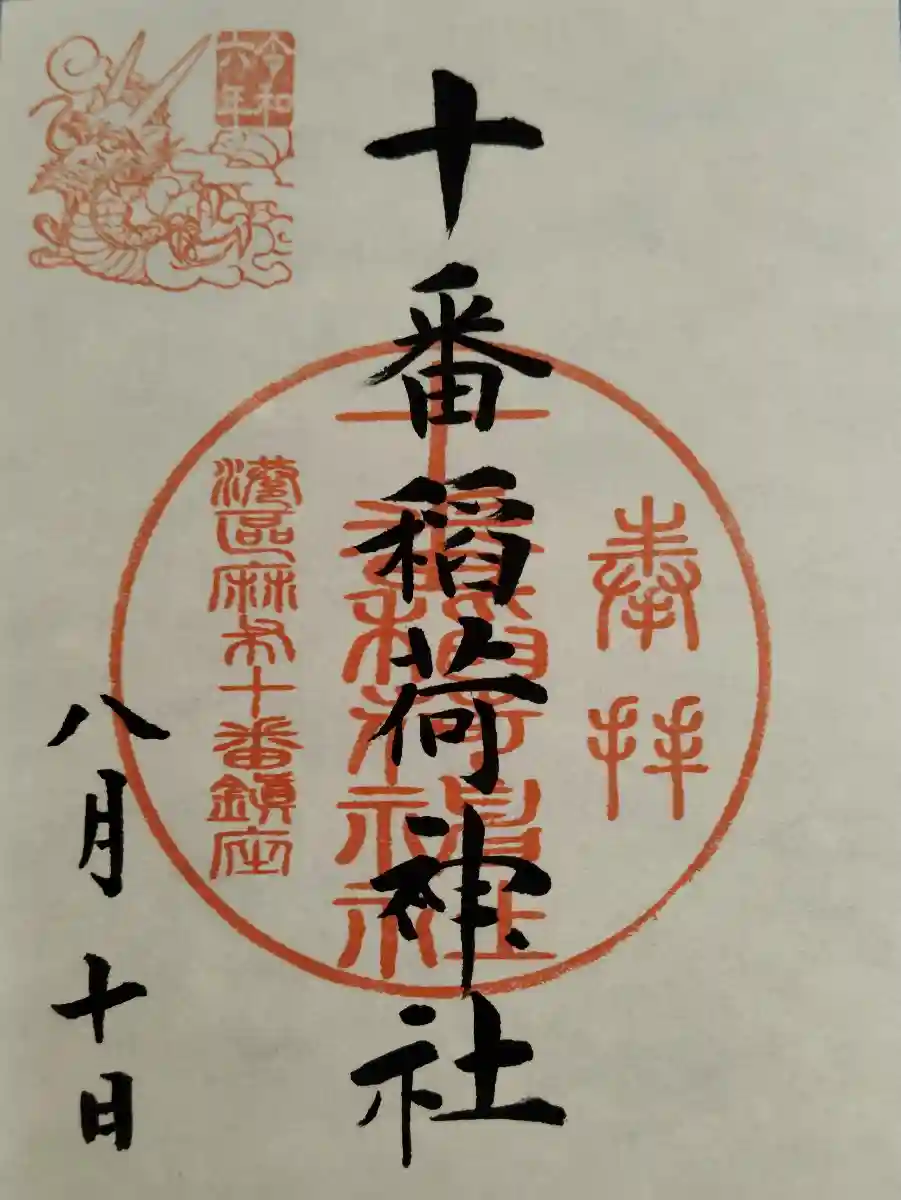 奉拝
十番稲荷神社
十番稲荷神社
港區麻布十番鎭座
八月十日
令和
六年